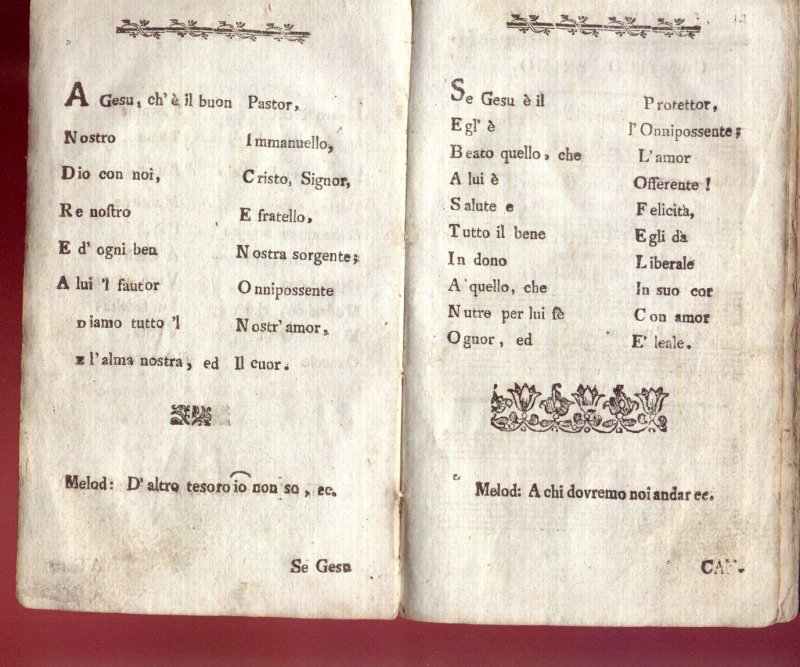 A Gesu, ch'è il buon Pastor,
Nostro Immanuello,
Dio con noi, Cristo, Signor,
Re noſtro E fratello,
E d' ogni ben Nostra sorgente;
A lui 'l fautor Onnipossente
Diamo tutto 'l Nostr' amor,
E l'alma nostra, ed Il cuor.
Melod: D' altro tesoro io non so, ec.
Se Gesu
Se Gesu è il Protettor,
Egl' è l'Onnipossente;
Beato quello, che L'amor
A lui è Offerente!
Salute e Felicità,
Tutto il bene Egli dà
In dono Liberale
A quello, che In suo cor
Nutre per lui fè Con amor
Ognor, ed E' leale.
Melod: A chi dovremo noi andar ec.